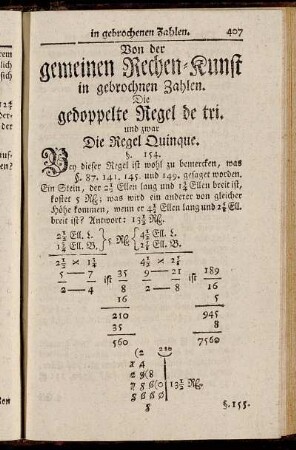 in gebrochenen Zahlen. 407
Von der
gemeinen Rechen-Kunst
in gebrochnen Zahlen.
Die
gedoppelte Regel de tri.
und zwar
Die Regel Quinque.
§. 154.
Bey dieser Regel ist wohl zu bemercken, was
§. 87. 141. 145. und 149. gesaget worden.
Ein Stein, der 2½ Ellen lang und 1¾ Ellen breit ist,
kostet 5 Rß; was wird ein anderer von gleicher
Höhe kommen, wenn er 4½ Ellen lang und Ell.
breit ist? Antwort: 13½ Rß.
2½ Ell. L.
1¾ Ell. B.
5 Rß
4½ Ell. L.
Ell. B.
2½ × 1¾
4½ ×
5 — 7 ist 35
2 — 4 8
9 — 21 ist 189
2 — 8 16
16 5
210 945
35 8
560 7560
(2
x 4
2 9 (8
7 8 6 0 | 13½ Rß.
8 6 6 0
8
§. 155.